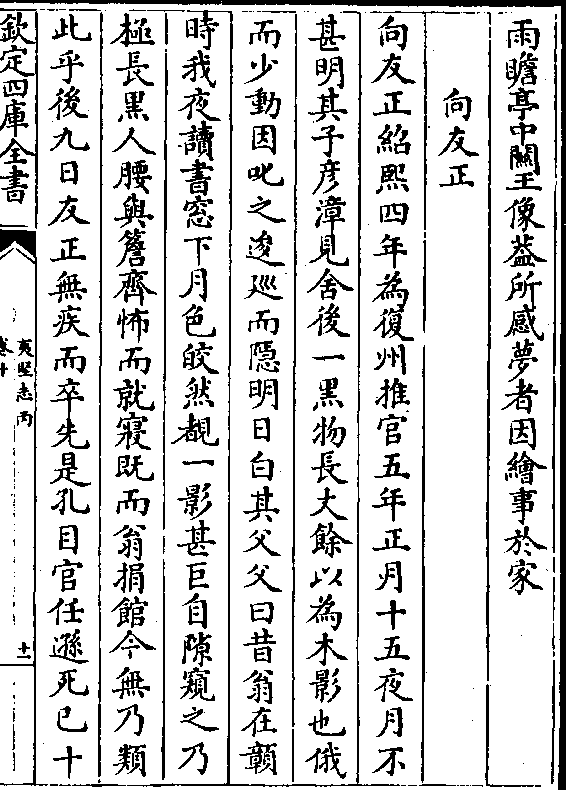 雨瞻亭中關王像葢所感夢者因繪事於家
向友正
向友正紹熙四年為復州推官五年正月十五夜月不
甚明其子彦漳見舍後一黒物長丈餘以為木影也俄
而少動因叱之逡廵而隱明日白其父父曰昔翁在贛
時我夜讀書窓下月色皎然覩一影甚巨自隙窺之乃
極長黒人腰與簷齊怖而就寢既而翁捐館今無乃類
此乎後九日友正無疾而卒先是孔目官任遜死已十
欽定四庫全書
夷堅志丙
卷十
十一